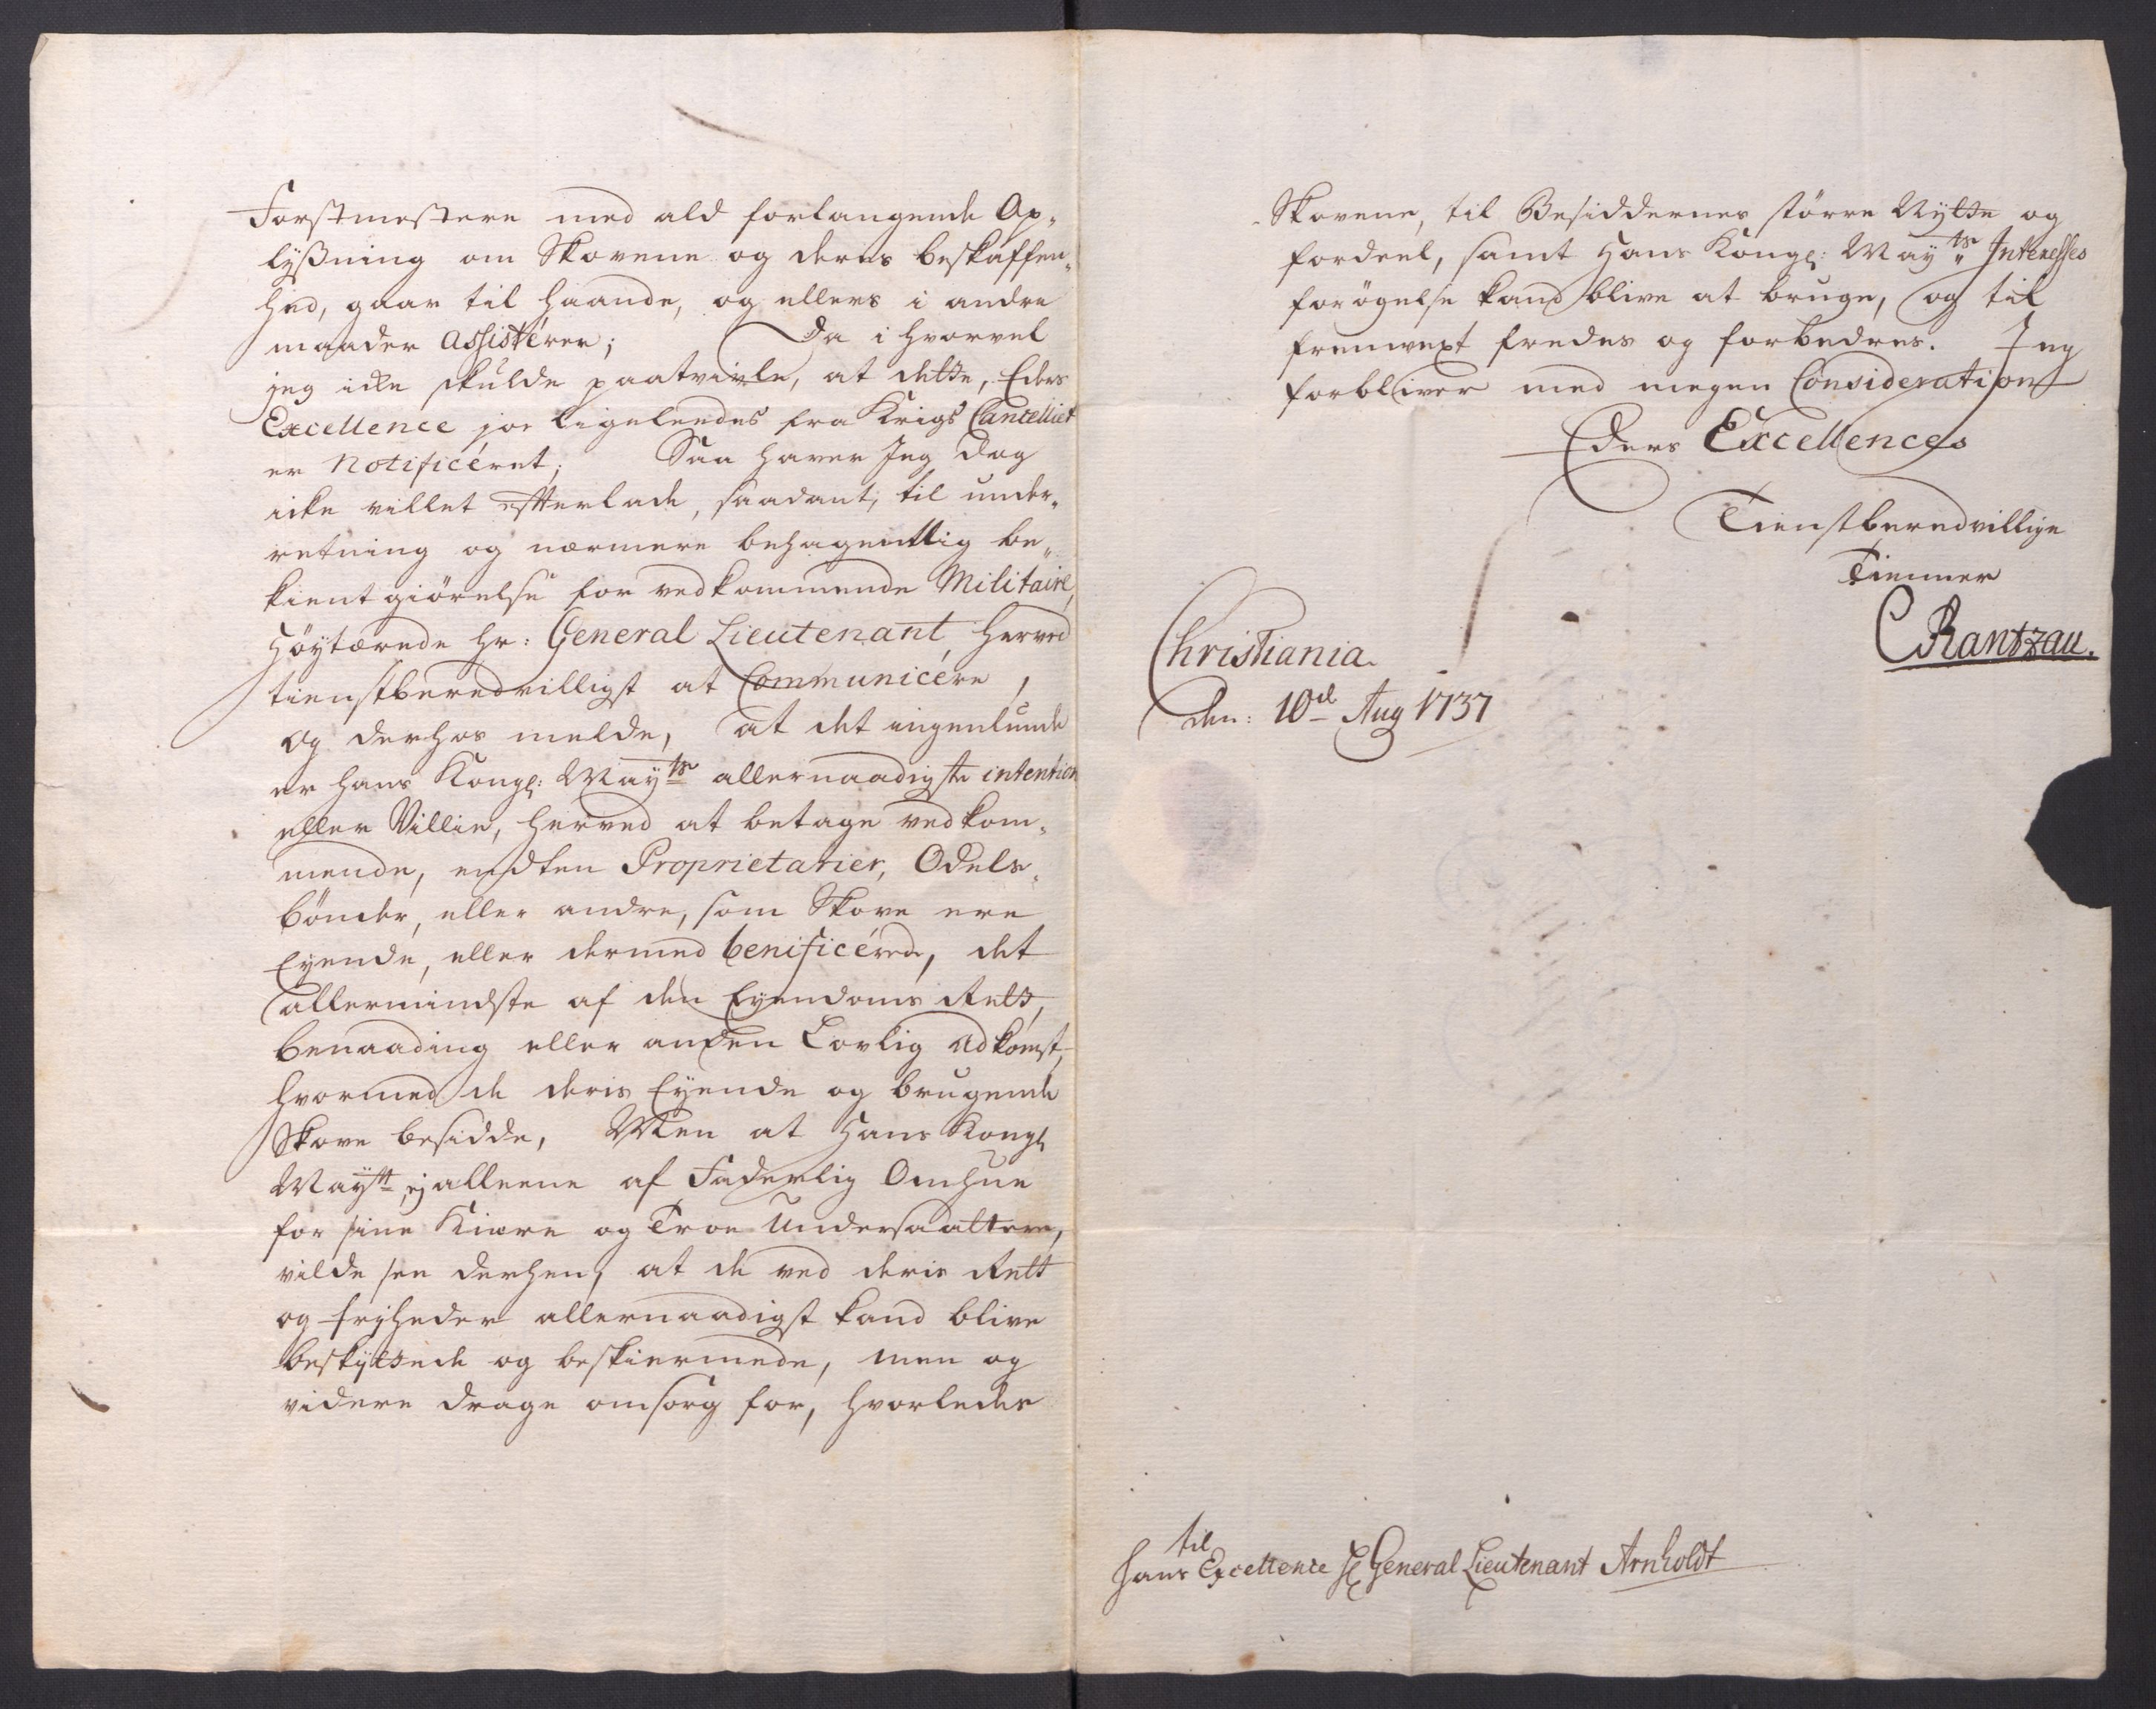 Forstmestere med ald forlangende Op-
lyßning om Skovene og deris beskaffen-
hed, gaar til haande, og ellers i andre
maader assistérer; Da i hvorvel
jeg icke skulde paatvivle, at dette, Eders
Excellence jo ligeledes fra Krigs Cancelliet
er Notificéret; Saa haver Jeg dog
icke villet efterlade, saadant, til under-
retning og nærmere behagentlig be-
kientgiørelse for vedkommende Militaire,
Höytærede Hr: General Lieutenant, herved
tienstberedvilligst at Communicére,
og derhos melde, at det ingenlunde
er hans Kongl: Mayts allernaadigste intention
eller Villie, herved at betage vedkom-
mende, endten Proprietarier, Odels-
bönder, eller andre, som Skove ere
Eyende, eller dermed benificérede, det
allermindste af den Eyendoms Rett,
benaading eller anden Lovlig adkomst,
hvormed de deris Eyende og brugende
Skove besidde, Men at Hans Kongl
Maytt ej alleene af Faderlig Omhue
for sine Kiære og Troe Undersaattere,
vilde see derhen, at de ved deris Rett
og fryheder allernaadigst kand blive
beskyttede og beskiermede, men og
videre drage omsorg for, hvorledes
Skovene, til Besiddernes större Nytte og
fordeel, samt Hans Kongl: Mayts Interesses
forögelse kand blive at bruge, og til
fremvext fredes og forbedres. Jeg
forbliver med megen Consideration
Eders Excellences
Tienstberedvillige
Tienner
CRantzau.
Christiania.
den: 10d Aug 1737
til
Hans Excellence Hr General Lieutenant Arnholdt